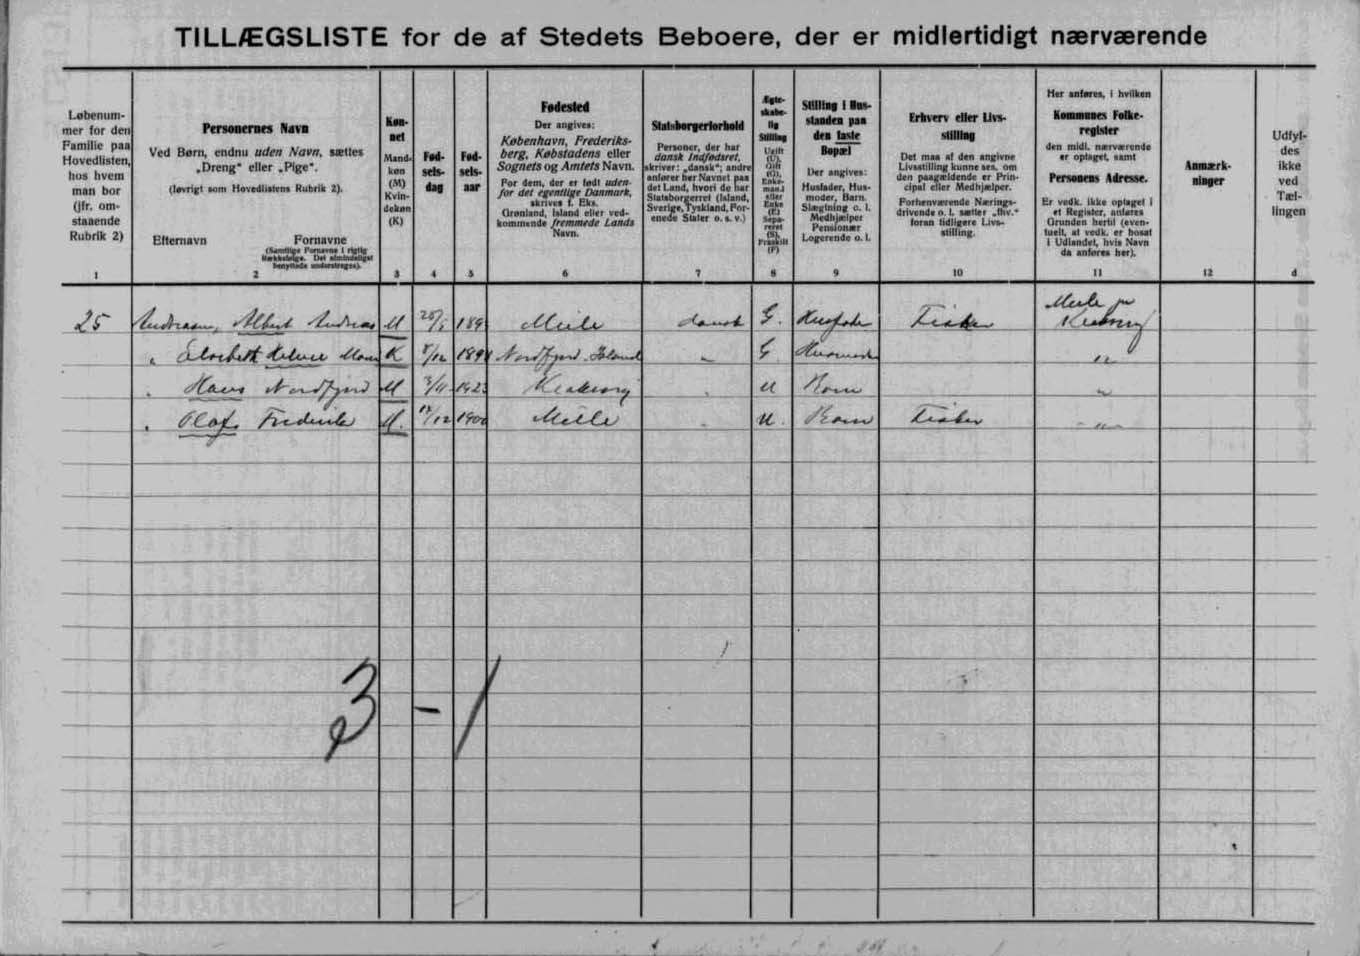 TILLÆGSLISTE for de af Stedets Beboere, der er midlertidigt nærværende
Løbenum-
mer for den
Familie paa
Hovedlisten,
hos hvem
man bor
(jfr. om-
staaende
Rubrik 2)
1
Personernes Navn
Ved Børn, endnu uden Navn, sættes
„Dreng" eller „Pige".
(Iøvrigt som Hovedlistens Rubrik 2).
Efternavn Fornavne
(Samtlige Fornavne i rigtig
Rækkefølge. Det almindeligst
benyttede understreges).
2
Køn-
net
Mand-
køn
(M)
Kvin-
dekøn
(K)
3
Fød-
sels-
dag
4
Fød-
sels-
aar
5
Fødested
Der angives:
København, Frederiks-
berg, Købstadens eller
Sognets og Amtets Navn.
For dem, der er født uden-
for det egentlige Danmark,
skrives f. Eks.
Grønland, Island eller ved-
kommende fremmede Lands
Navn.
6
Statsborgerforhold
Personer, der har
dansk Indfødsret,
skriver: „dansk"; andre
anfører her Navnet paa
det Land, hvori de har
Statsborgerret (Island,
Sverige, Tyskland, For-
enede Stater o. s. v.)
7
Ægte-
skabe-
lig
Stilling
Ugift
(U),
Gift
(G),
Enke-
mand
eller
Enke
(E)
Sepa-
reret
(S),
Fraskilt
(F)
8
Stilling i Hus-
standen paa
den faste
Bopæl
Der angives:
Husfader, Hus-
moder, Barn,
Slægtning o. l.
Medhjælper
Pensionær
Logerende o. l.
9
Erhverv eller Livs-
stilling
Det maa af den angivne
Livsstilling kunne ses, om
den paagældende er Prin-
cipal eller Medhjælper.
Forhenværende Nærings-
drivende o. l. sætter „fhv."
foran tidligere Livs-
stilling.
10
Her anføres, i hvilken
Kommunes Folke-
register
den midl. nærværende
er optaget, samt
Personens Adresse.
Er vedk. ikke optaget i
et Register, anføres
Grunden hertil (even-
tuelt, at vedk. er bosat
i Udlandet, hvis Navn
da anføres her).
11
Anmærk-
ninger
12
Udfyl-
des
ikke
ved
Tæl-
lingen
d
25 Andreasen, Albert Andreas M 189 dansk G. Husfader Fisker
„ Elisabeth K 8/12 Nordfjord Island „ G. Husmoder „
„ Hans Nordfjord M „ U Barn „
„ Olaf Frederik M. /12 1900 „ U. Barn Fisker „
3 - 1